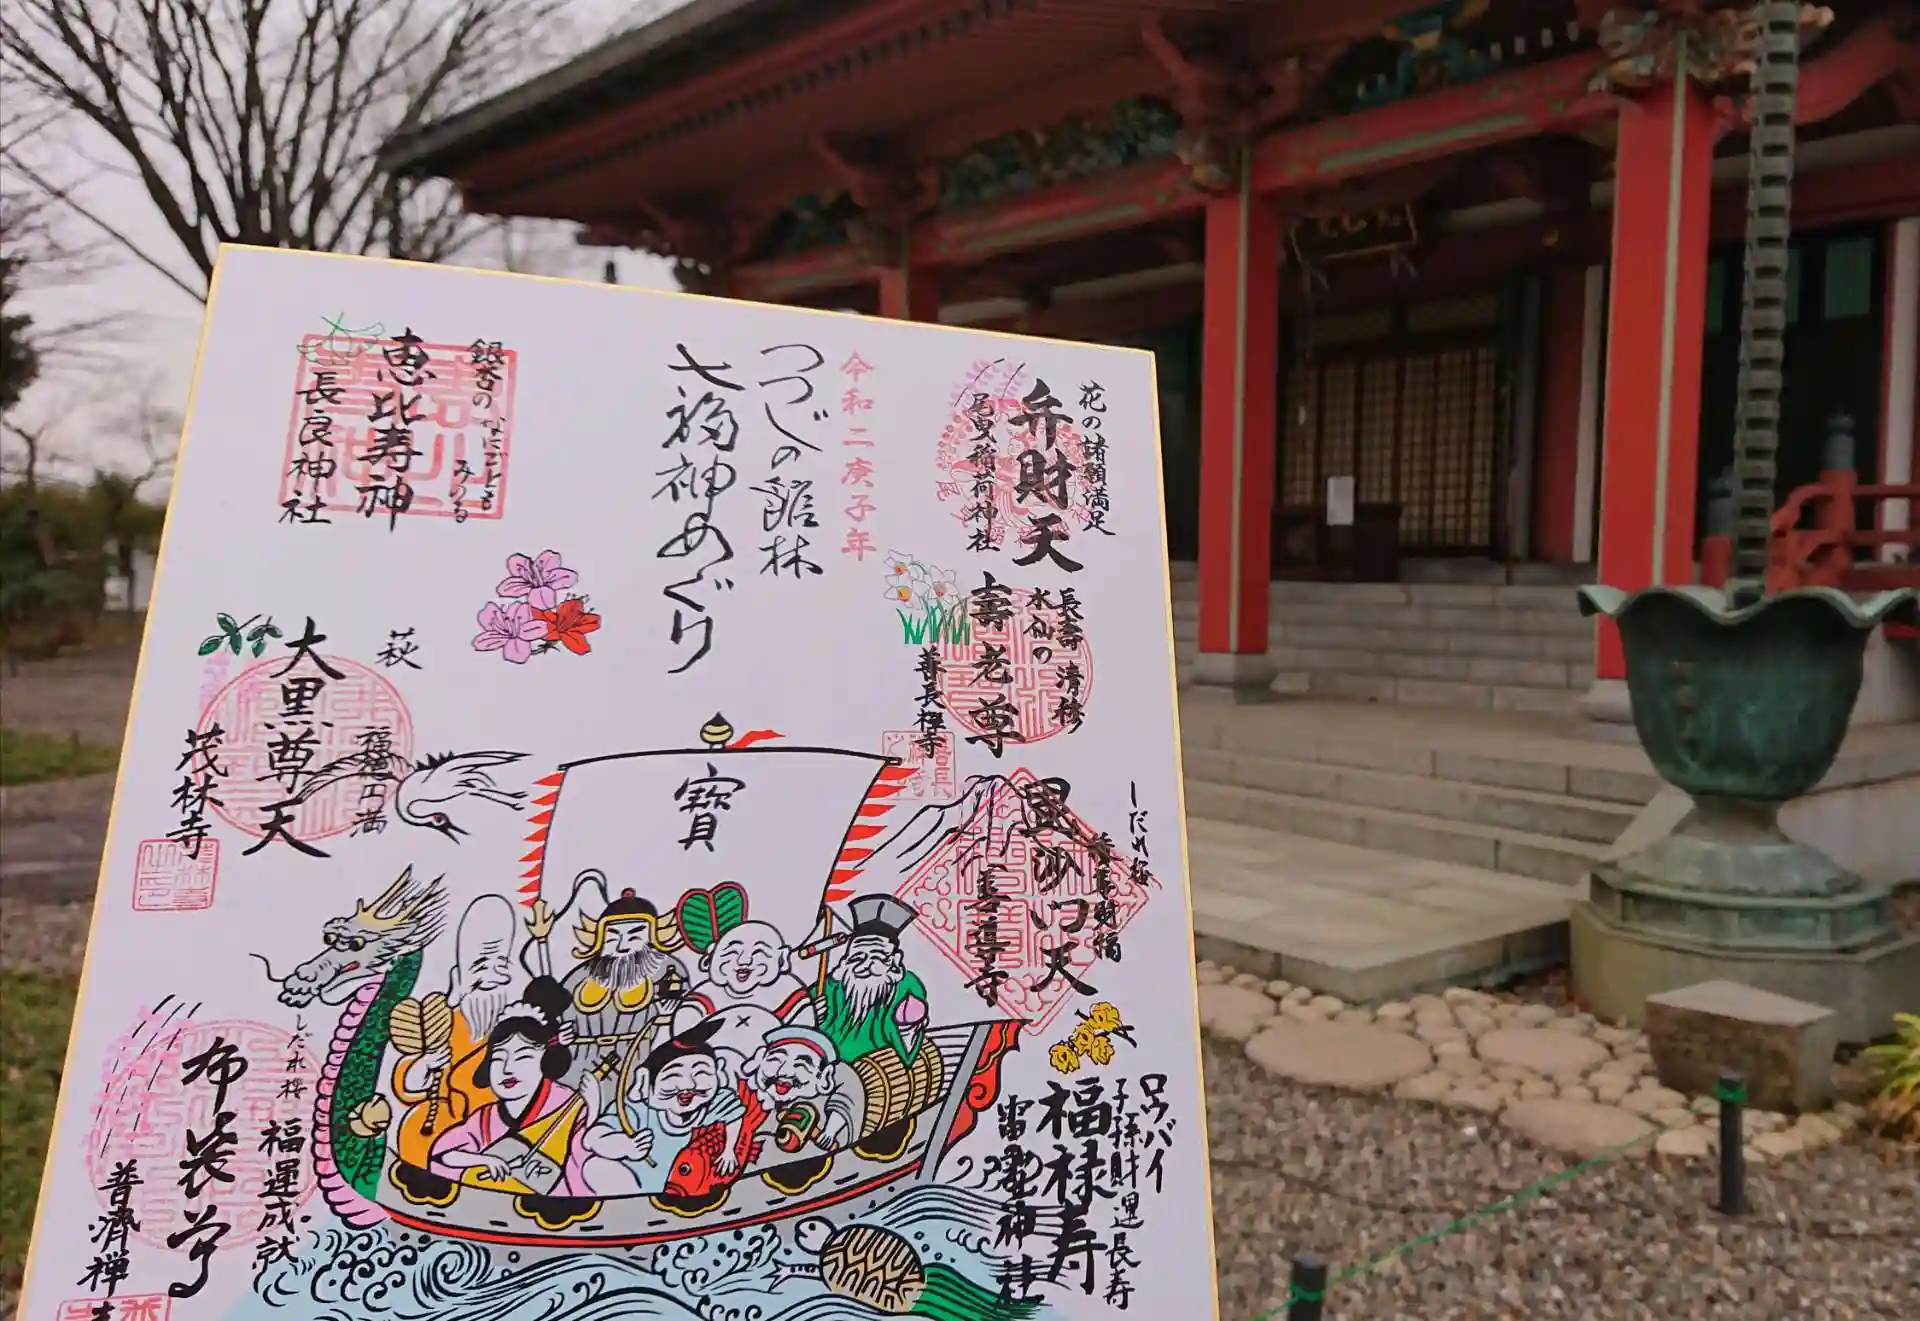 花の諸願満足
弁財天
尾曳稲荷神社
長壽 清修
水仙の
壽老尊
善長禅寺
しだれ桜
毘沙門天
ロウバイ
子孫財運長寿
福禄寿
雷電神社
令和二庚子年
つつじの館林
七福神めぐり
銀杏の なにごとも
みのる
恵比寿神
長良神社
萩
福徳円満
大黒尊天
茂林寺
寶
しだれ桜
福運成就
布袋尊
普済禅寺